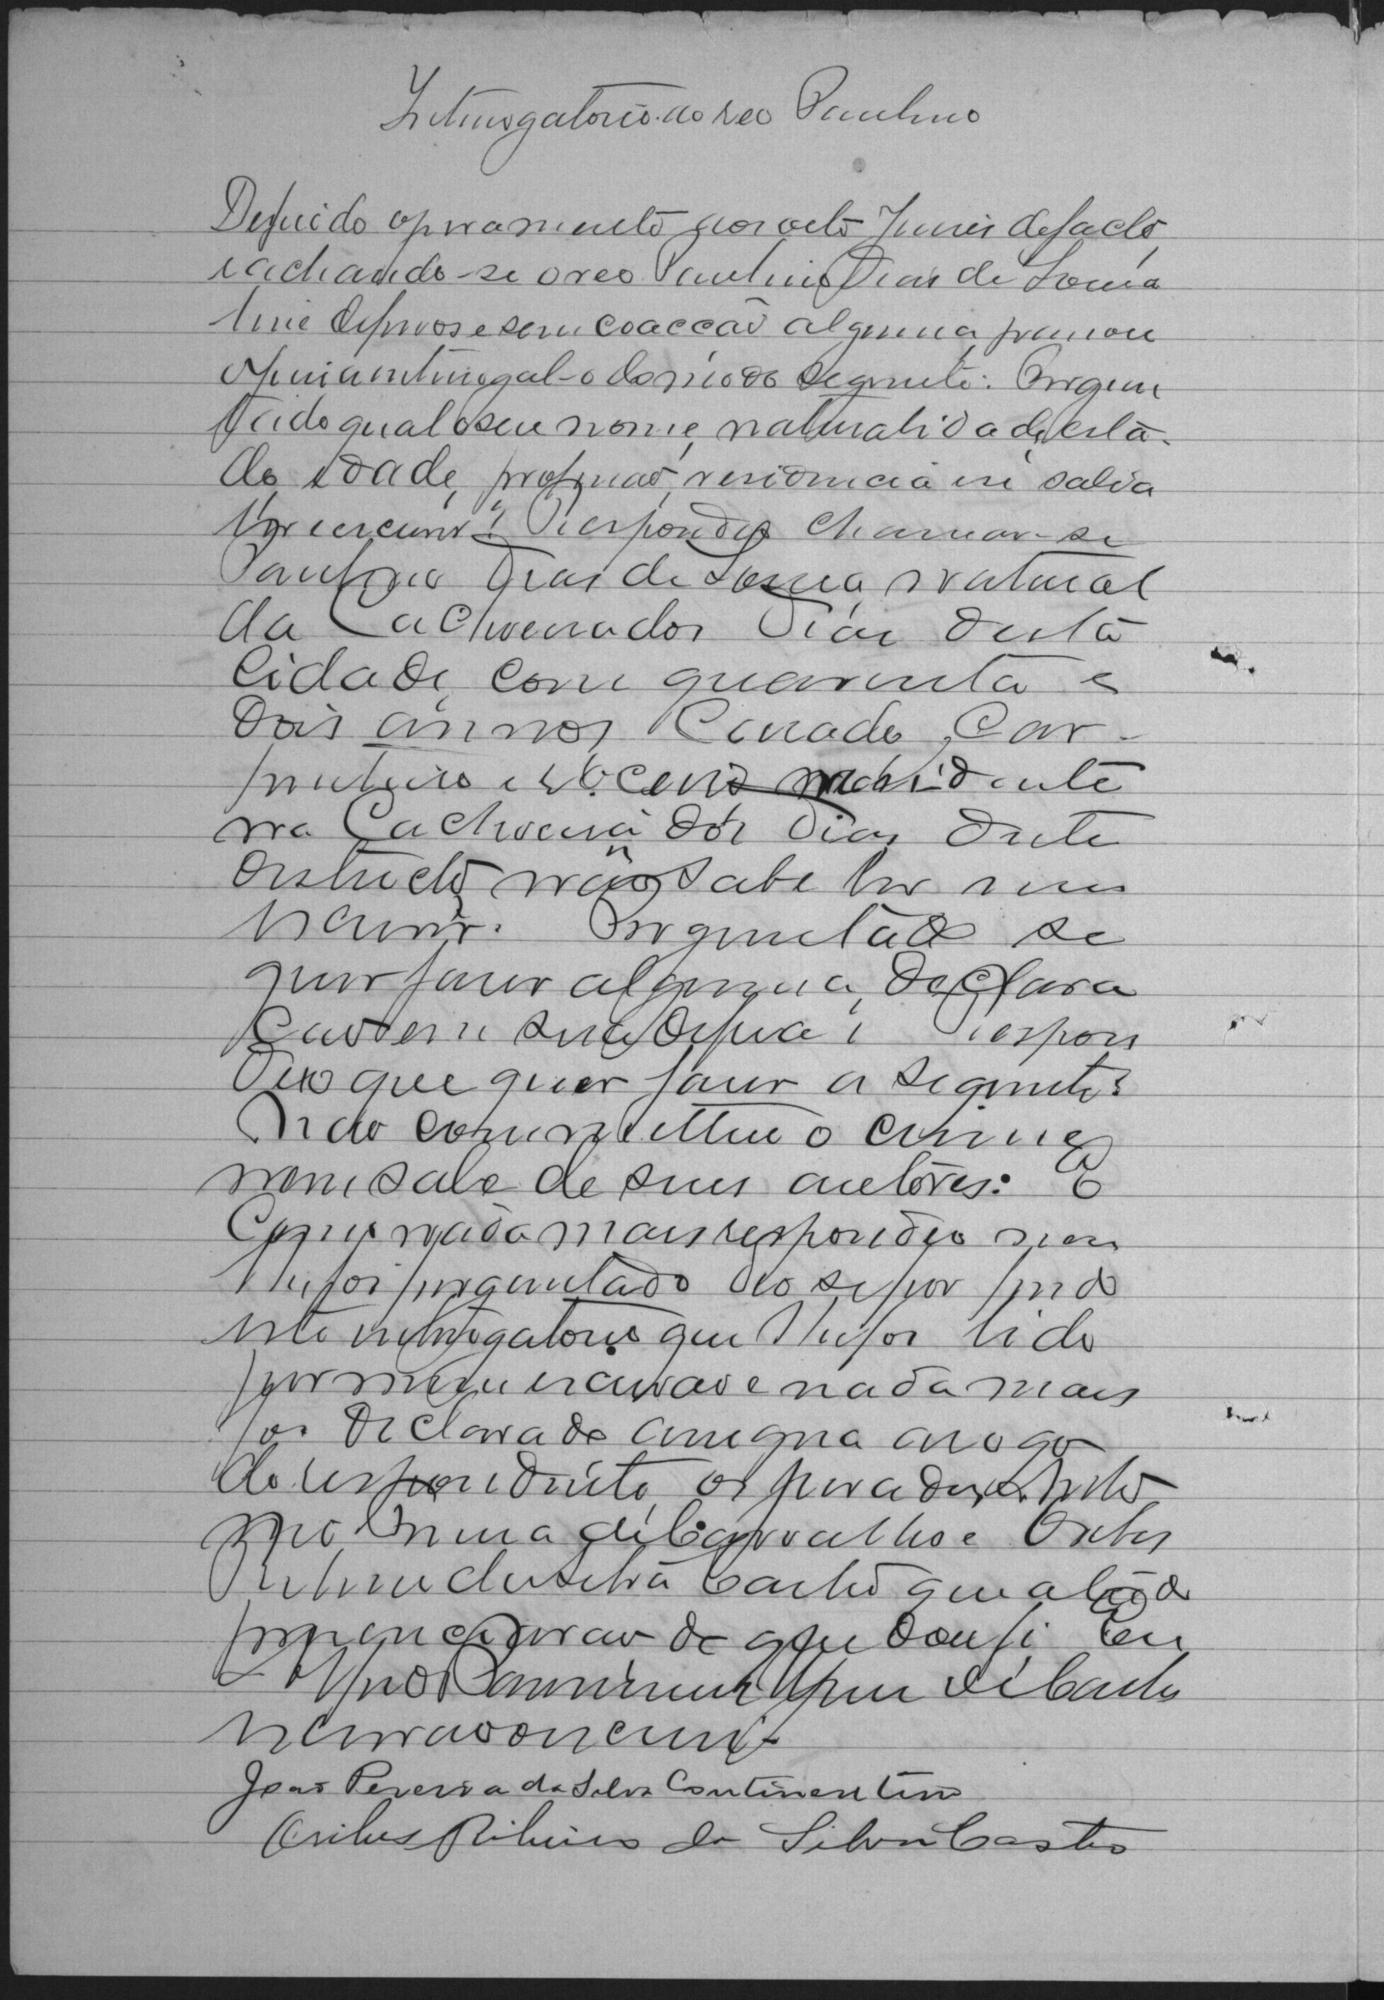 Interrogatorio do reo Paulino
Deferido o juramento aos oito Juizes de facto,
e achando-se o reo Paulino Dias de Souza
livre de ferros e sem coacção alguma passou
o Juiz a interrogal-o do modo seguinte: Pergun
tado qual o seu nome, naturalidade, esta-
do, idade, profissão, residencia e si sabia
ler e escrever? Respondeo chamar-se
Paulino Dias de Souza, natural
da Cachoeira dos Dias desta
Cidade, com quarenta e
dois annos, Casado, Car-
pinteiro e residente
na Cachoeira dos Dias deste
districto, não sabe ler nem
escrever. Perguntado se
quer fazer alguma declara
ção em sua defeza? Respon
deo que quer fazer a seguinte:
Não commetteu o crime
nem sabe de seus autores: E
Como nada mais respondeo nem
lhe foi perguntado deo se por findo
este interrogatorio que lhe foi lido
por mim escrivão e nada mais
foi declarado assigna a rogo
do respondente, os jurados
de Carvalho e Oribes
Ribeiro da Silva Castro que a tudo
presenciarão do que dou fé. Eu
de Castro
escrivão o escrevi.
João Pereira da Silva Continentino
Oribes Ribeiro da Silva Castro